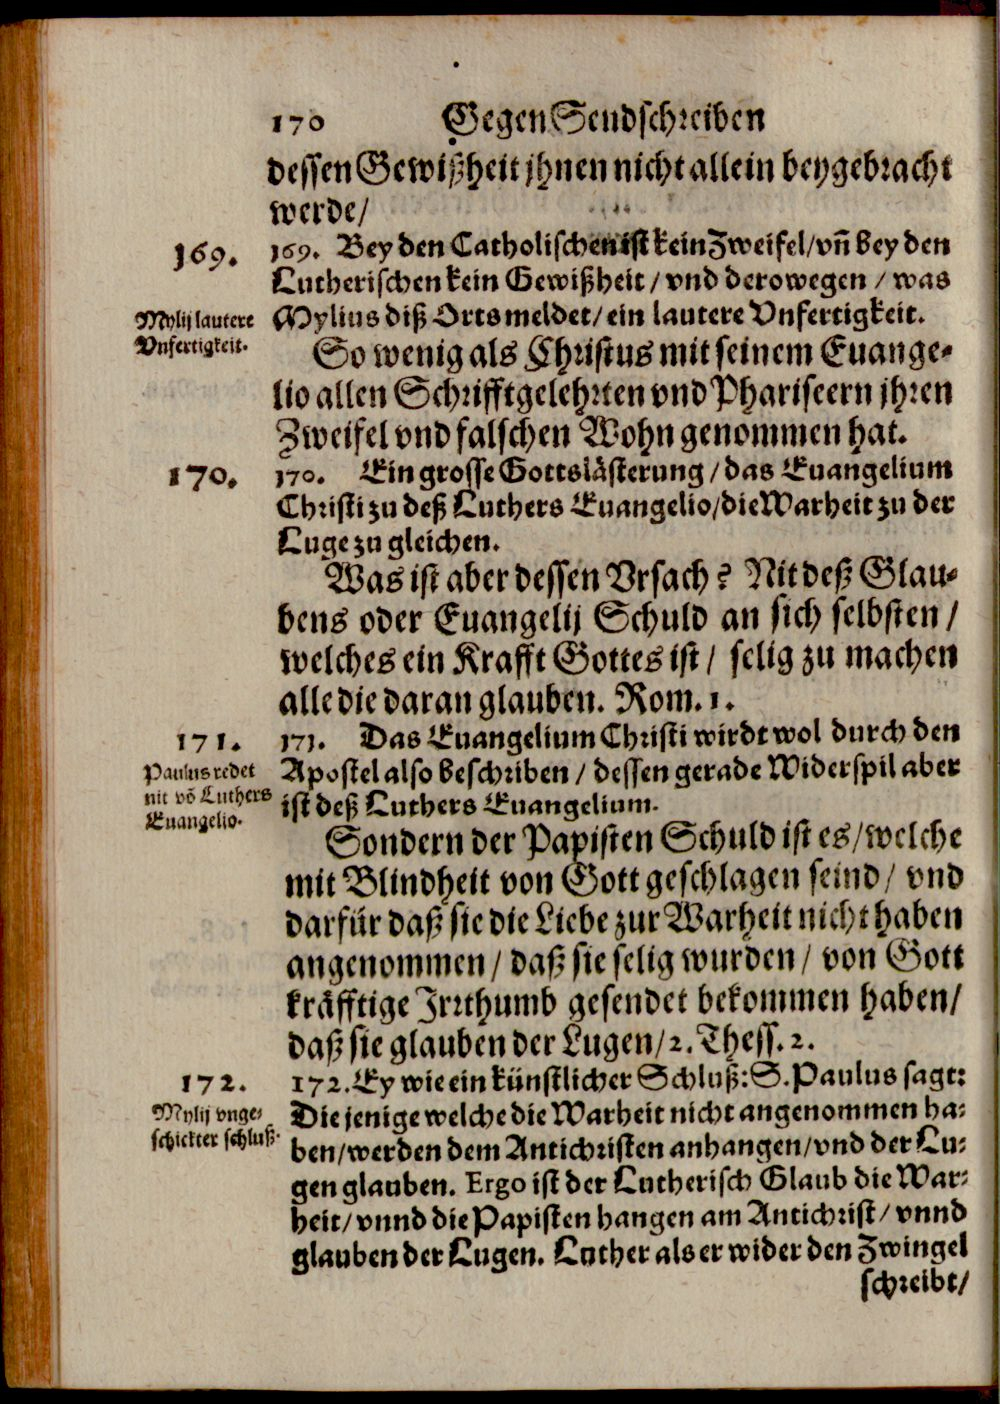 170 Gegen Sendschreiben
dessen Gewißheit jhnen nicht allein beygebracht
werde/
169.
169. Bey den Catholischen ist kein Zweifel/vñ bey den
Lutherischen kein Gewißheit / vnd derowegen / was
Mylij lautere
Vnfertigkeit.
Mylius diß Orts meldet/ ein lautere Vnfertigkeit.
So wenig als Christus mit seinem Euange-
lio allen Schrifftgelehrten vnd Phariseern jhren
Zweifel vnd falschen Wohn genommen hat.
170.
170. Ein grosse Gottslästerung / das Euangelium
Christi zu deß Luthers Euangelio/die Warheit zu der
Luge zu gleichen.
Was ist aber dessen Vrsach? Nit deß Glau-
bens oder Euangelij Schuld an sich selbsten /
welches ein Krafft Gottes ist / selig zu machen
alle die daran glauben. Rom. 1.
171.
Paulus redet
nit võ Luthers
Euangelio.
171. Das Euangelium Christi wirdt wol durch den
Apostel also beschriben / dessen gerade Widerspil aber
ist deß Luthers Euangelium.
Sondern der Papisten Schuld ist es/welche
mit Blindheit von Gott geschlagen seind / vnd
darfür daß sie die Liebe zur Warheit nicht haben
angenommen / daß sie selig wurden / von Gott
kräfftige Irrthumb gesendet bekommen haben/
daß sie glauben der Lugen/2. Thess. 2.
172.
Mylij vnge-
schickter schluß.
172. Ey wie ein künstlicher Schluß: S. Paulus sagt:
Die jenige welche die Warheit nicht angenommen ha-
ben/werden dem Antichristen anhangen/vnd der Lu-
gen glauben. Ergo ist der Lutherisch Glaub die War-
heit/ vnnd die Papisten hangen am Antichrist / vnnd
glauben der Lugen. Luther als er wider den Zwingel
schreibt/